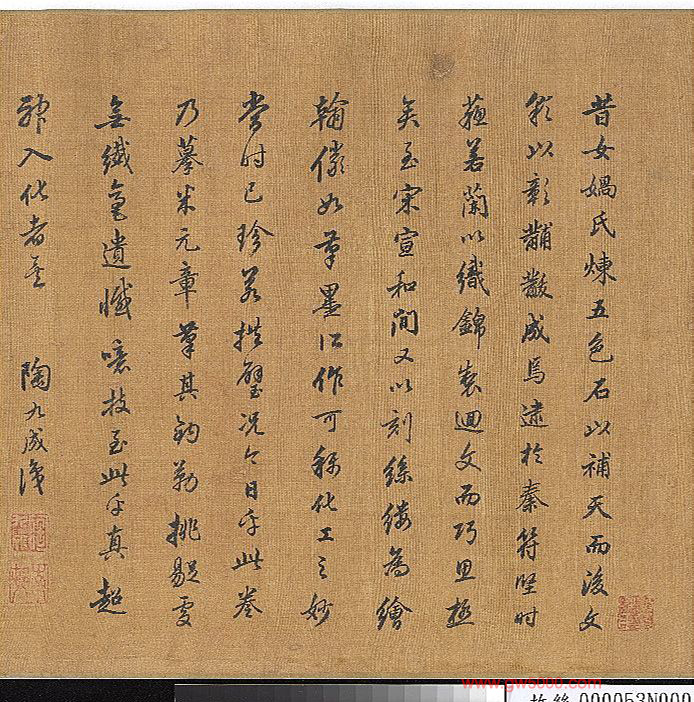 昔女媧氏煉五色石以補天而後文
彩以彰黼黻成焉逮於秦苻堅時
蘇若蘭以織錦製迴文而巧思極
矣至宋宣和間又以刻絲縷為繪
翰儼如筆墨所作可稱化工之妙
當時已珍若拱璧況今日乎此卷
乃摹米元章筆其鉤勒挑剔處
無纖毫遺憾噫技至此乎真超
神入化者矣 陶九成識
www.gw5000.com
故絲000053N000